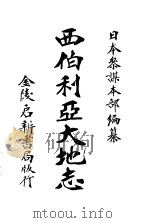 日本參謀本部編纂
西伯利亞大地志
金陵啓新書局版行